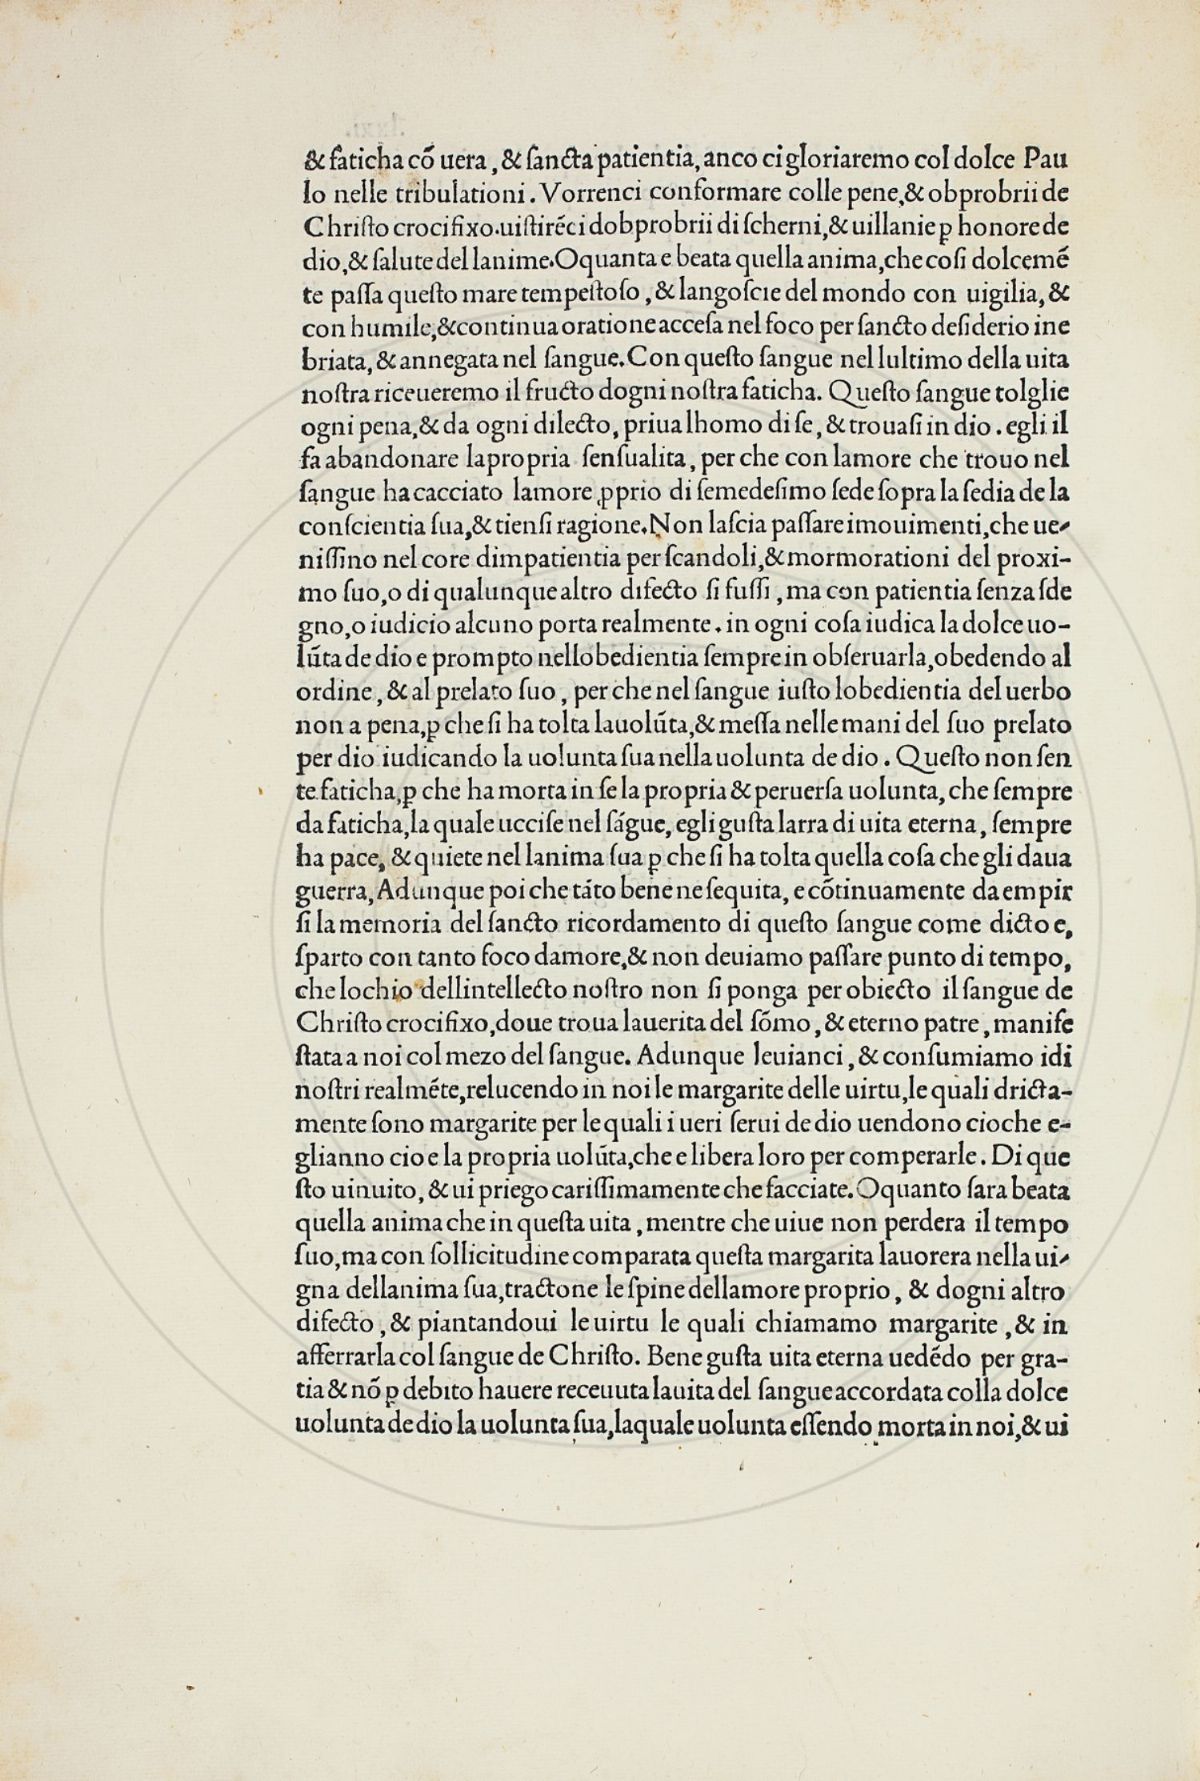 & faticha cõ uera, & ſancta patientia, anco ci gloriaremo col dolce Pau
lo nelle tribulationi. Vorrenci conformare colle pene, & obprobrii de
Chriſto crocifixo. uiſtirẽci dobprobrii di ſcherni, & uillanie ꝑ honore de
dio, & ſalute del lanime. O quanta e beata quella anima, che coſi dolcemẽ
te paſſa queſto mare tempeſtoſo, & langoſcie del mondo con uigilia, &
con humile, & continua oratione acceſa nel foco per ſancto deſiderio ine
briata, & annegata nel ſangue. Con queſto ſangue nel lultimo della uita
noſtra riceueremo il fructo dogni noſtra faticha. Queſto ſangue tolglie
ogni pena, & da ogni dilecto, priua lhomo di ſe, & trouaſi in dio. egli il
fa abandonare la propria ſenſualita, per che con lamore che trouo nel
ſangue ha cacciato lamore ꝓprio di ſe medeſimo ſede ſopra la ſedia de la
conſcientia ſua, & tienſi ragione. Non laſcia paſſare i mouimenti, che ue-
niſſino nel core dimpatientia per ſcandoli, & mormorationi del proxi-
mo ſuo, o di qualunque altro difecto ſi fuſſi, ma con patientia ſenza ſde
gno, o iudicio alcuno porta realmente. in ogni coſa iudica la dolce uo-
lũta de dio e prompto nello bedientia ſempre in obſeruarla, obedendo al
ordine, & al prelato ſuo, per che nel ſangue iuſto lobedientia del uerbo
non a pena, ꝑ che ſi ha tolta la uolũta, & meſſa nelle mani del ſuo prelato
per dio iudicando la uolunta ſua nella uolunta de dio. Queſto non ſen
te faticha, ꝑ che ha morta in ſe la propria & peruerſa uolunta, che ſempre
da faticha, la quale ucciſe nel ſãgue, egli guſta larra di uita eterna, ſempre
ha pace, & quiete nel lanima ſua ꝑ che ſi ha tolta quella coſa che gli daua
guerra, Adunque poi che tãto bene ne ſequita, e cõtinuamente da empir
ſi la memoria del ſancto ricordamento di queſto ſangue come dicto e,
ſparto con tanto foco damore, & non deuiamo paſſare punto di tempo,
che lochio dellintellecto noſtro non ſi ponga per obiecto il ſangue de
Chriſto crocifixo, doue troua la uerita del ſõmo, & eterno patre, manife
ſtata a noi col mezo del ſangue. Adunque leuianci, & conſumiamo i di
noſtri realmẽte, relucendo in noi le margarite delle uirtu, le quali dricta-
mente ſono margarite per le quali i ueri ſerui de dio uendono cioche e-
glianno cio e la propria uolũta, che e libera loro per comperarle. Di que
ſto ui nuito, & ui priego cariſſimamente che facciate. O quanto ſara beata
quella anima che in queſta uita, mentre che uiue non perdera il tempo
ſuo, ma con ſollicitudine comparata queſta margarita lauorera nella ui-
gna dellanima ſua, tractone le ſpine dellamore proprio, & dogni altro
difecto, & piantandoui le uirtu le quali chiamamo margarite, & in
afferrarla col ſangue de Chriſto. Bene guſta uita eterna uedẽdo per gra-
tia & nõ ꝑ debito hauere receuuta la uita del ſangue accordata colla dolce
uolunta de dio la uolunta ſua, la quale uolunta eſſendo morta in noi, & ui